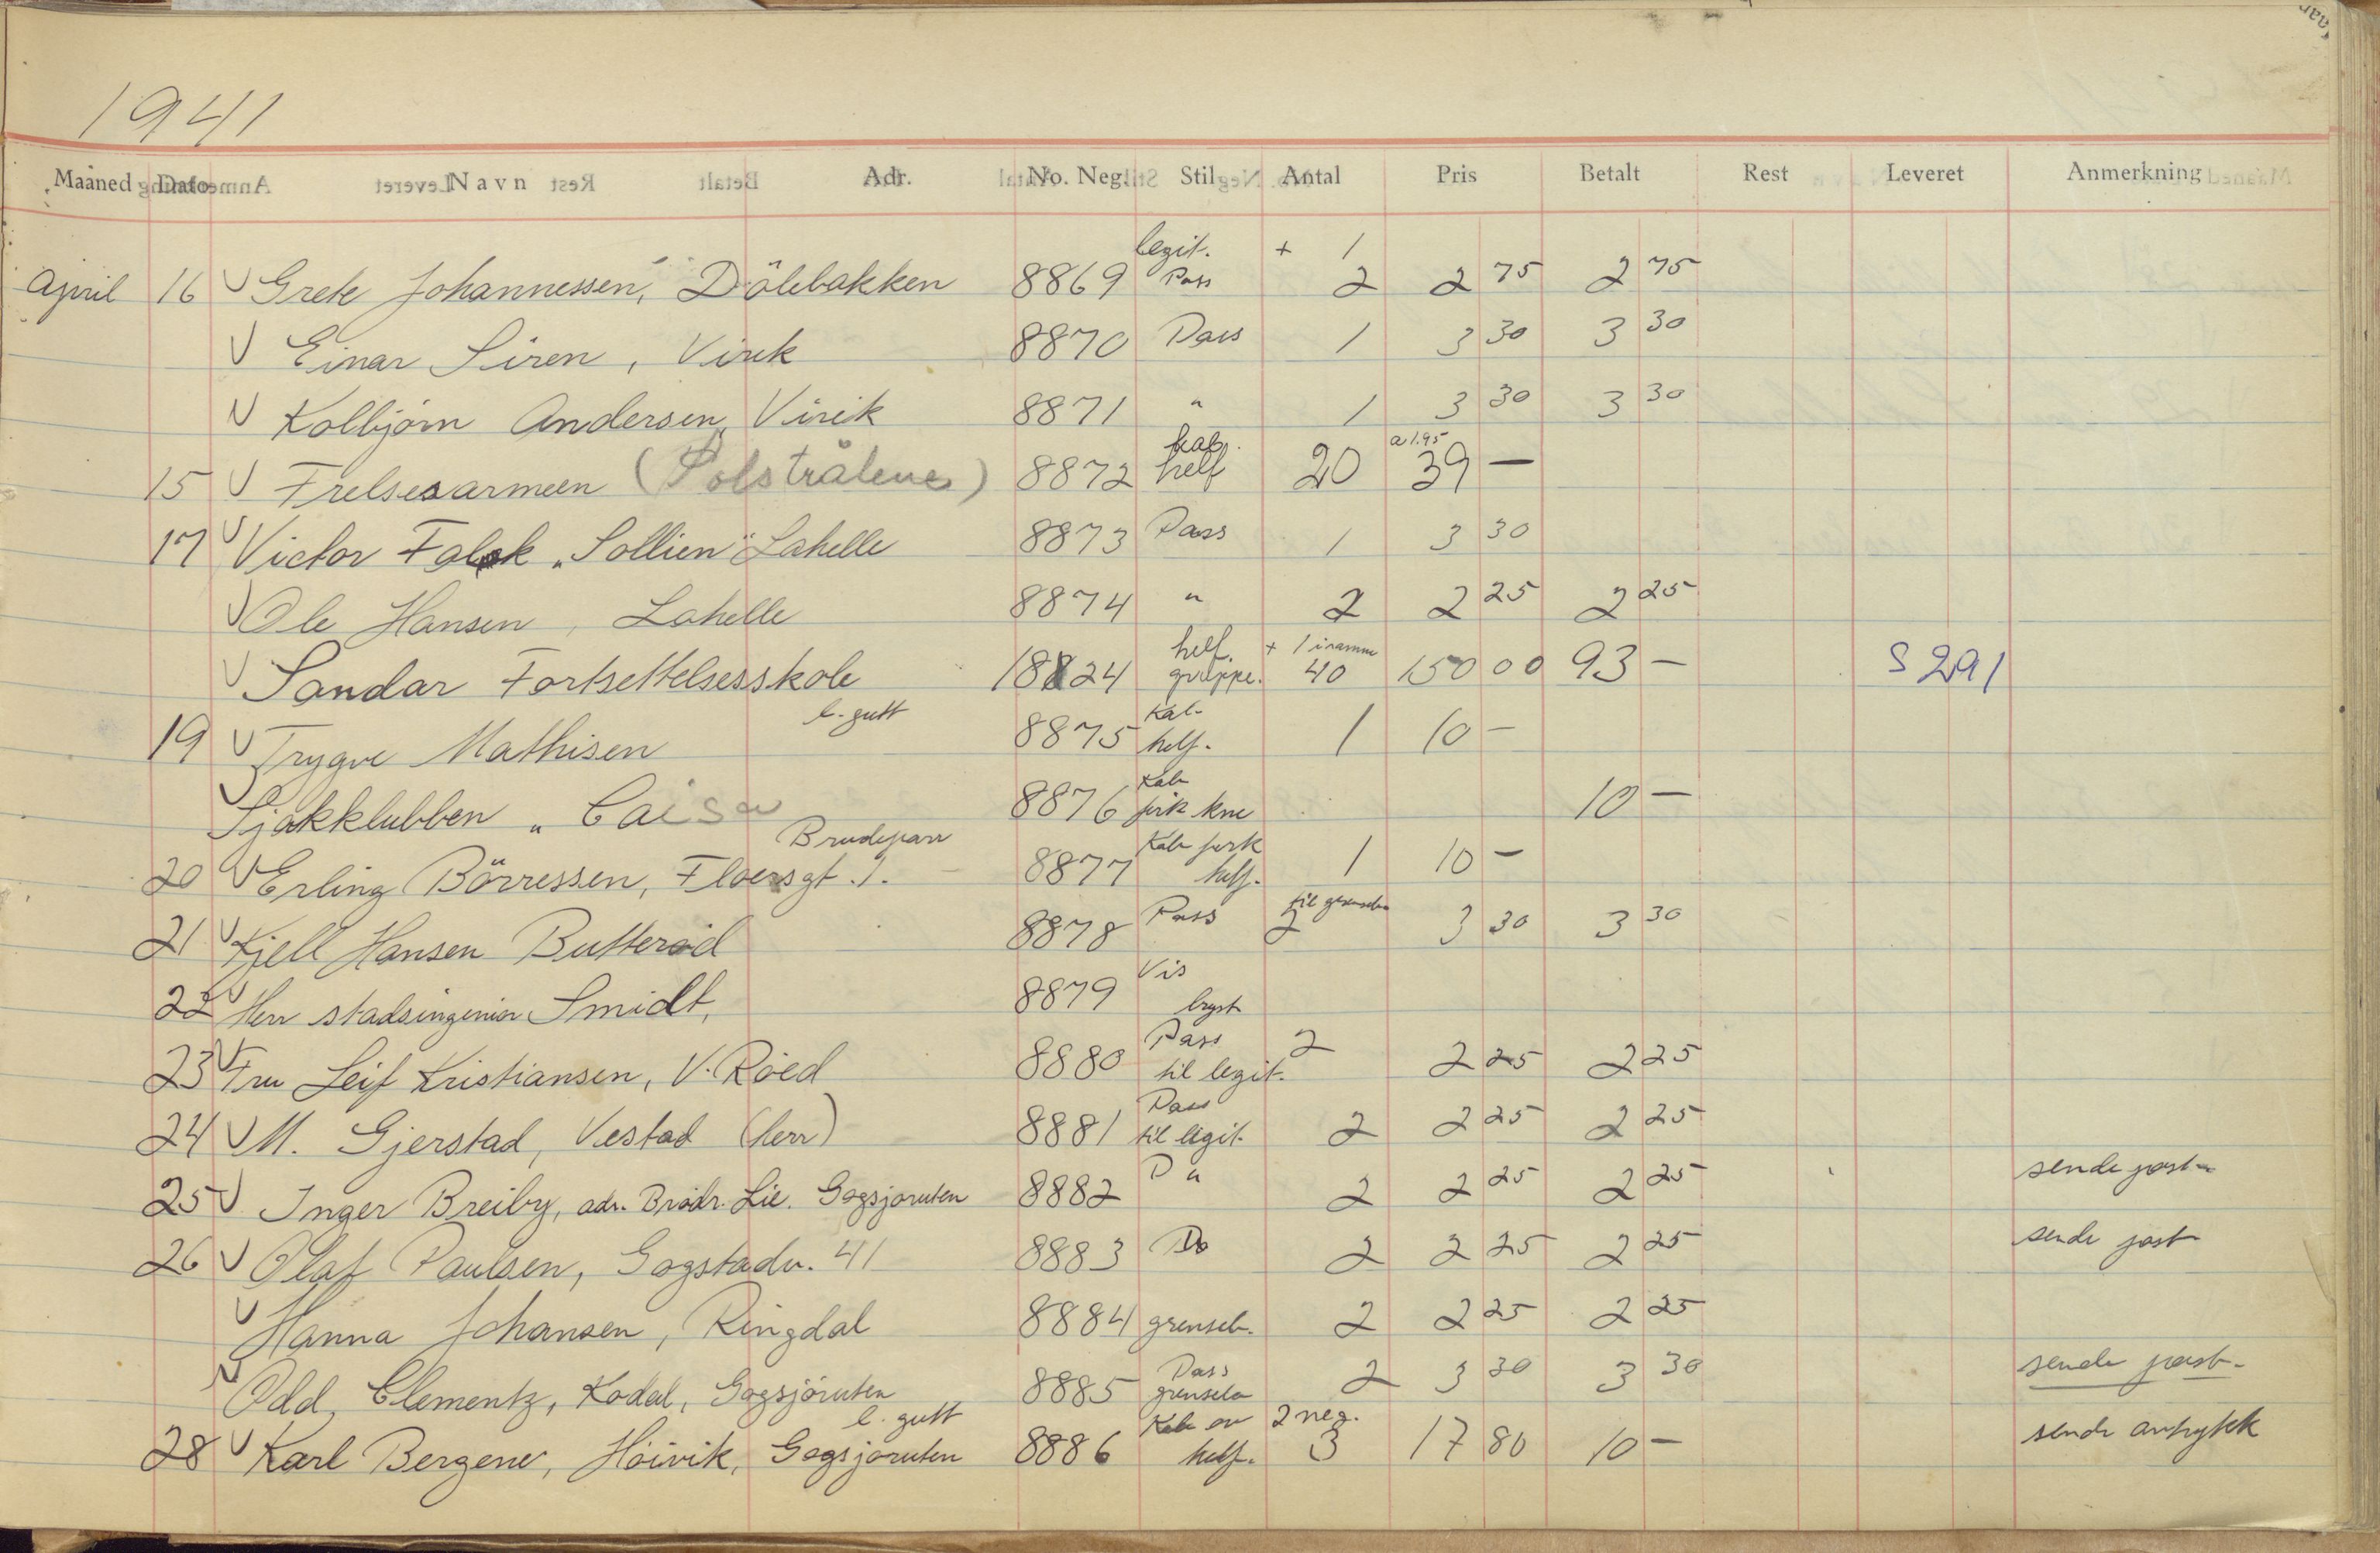 1941
Maaned Dato Navn Adr. No. Neg. Stil Antal Pris Betalt Rest Leveret Anmerkning
legit. + 1
April 16 Grete Johannessen, Dölebakken 8869 Pass 2 2 75 2 75
Einar Siren, Virik 8870 Pass 1 3 30 3 30
Kolbjörn Andersen, Virik 8871 " 1 3 30 3 30
kab. a 1.95
15 Frelsesarmeen (Polstrålene) 8872 helf 20 39 —
17 Victor Falck „Sollien" Lahelle 8873 Pass 1 3 30
Ole Hansen, Lahelle 8874 " 2 2 25 2 25
helf. + 1 i ramme
Sandar Fortsettelsesskole 18824 gruppe. 40 150 00 93 — S 291
l. gutt Kab.
19 Trygve Mathisen 8875 helf. 1 10 —
Kab
Sjakklubben „Caisa 8876 kne 10 —
Brudepar Kab
20 Erling Börressen, Floersgt. 1. 8877 helf. 1 10 —
til grensebo
21 Kjell Hansen Butteröd 8878 Pass 2 3 30 3 30
Vis
22 Herr stadsingeniör Smidt, 8879 bryst
Pass 2
23 Fru Leif Kristiansen, V. Röed 8880 til legit. 2 25 2 25
Pass
24 M. Gjerstad, Vestad (herr) 8881 til legit. 2 2 25 2 25
25 Inger Breiby, adr. Brödr. Lie. Gogsjöruten 8882 D " 2 2 25 2 25 sende post
26 Olaf Paulsen, Gogstadv. 41 8883 Do 2 2 25 2 25 sende post
Hanna Johansen, Ringdal 8884 grenseb. 2 2 25 2 25
Pass
Odd Clementz, Kodal, Gogsjöruten 8885 grensebo 2 3 30 3 30 sende post.
l. gutt Kab av 2 neg.
28 Karl Bergene, Höivik, Gogsjöruten 8886 helf. 3 17 80 10 — sende avtrykk